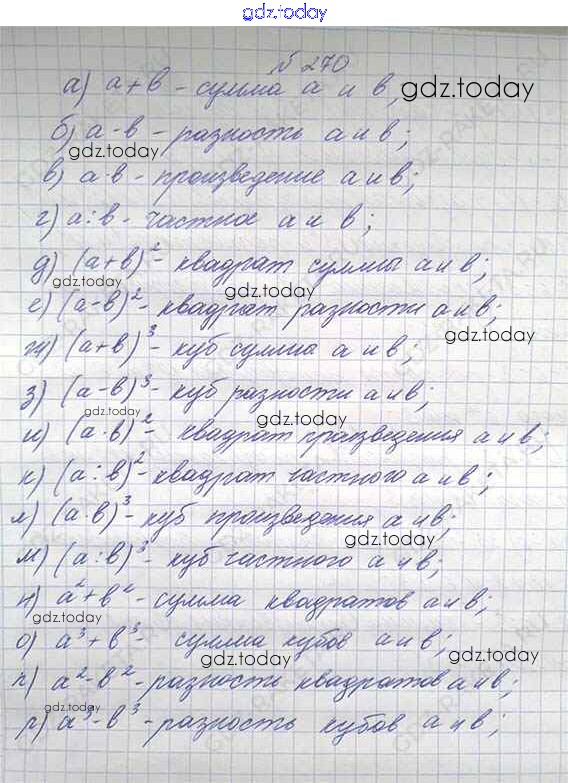 gdz.today
№ 270
а) а+в - сумма а и в, gdz.today
б) а-в - разность а и в;
gdz.today
в) а·в - произведение а и в;
г) а:в - частное а и в;
д) (а+в)² - квадрат суммы а и в;
gdz.today gdz.today
е) (а-в)² - квадрат разности а и в;
ж) (а+в)³ - куб сумма а и в; gdz.today
з) (а-в)³ - куб разности а и в;
gdz.today
и) (а·в)² - квадрат произведения а и в;
к) (а:в)² - квадрат частного а и в;
л) (а·в)³ - куб произведения а и в;
gdz.today
м) (а:в)³ - куб частного а и в;
н) а²+в² - сумма квадратов а и в;
gdz.today
о) а³+в³ - сумма кубов а и в;
gdz.today gdz.today
п) а²-в² - разности квадратов а и в;
gdz.today
р) а³-в³ - разность кубов а и в;